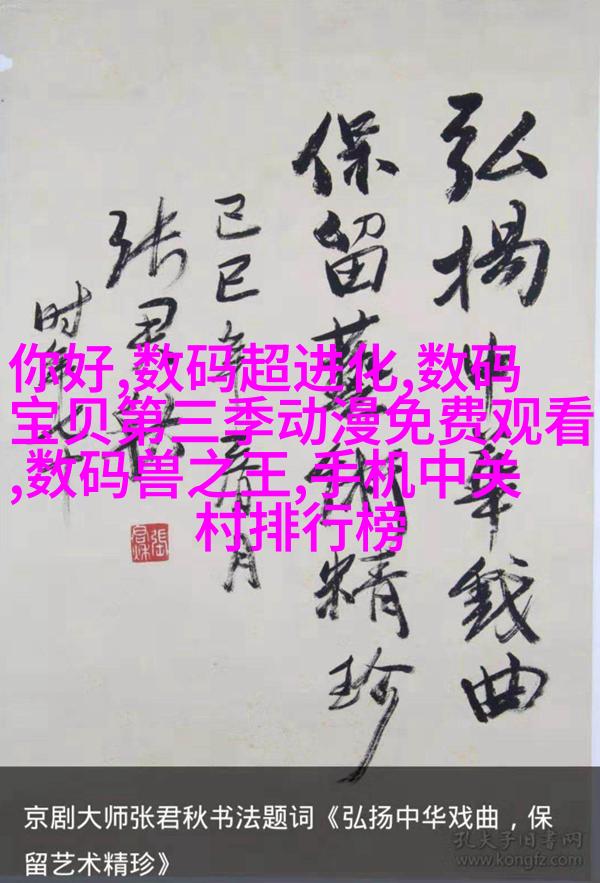 弘揚中華戲曲
保留藝術精珍
己巳年春月
张君秋
你好,数码超进化,数码
宝贝第三季动漫免费观看
,数码兽之王,手机中关
村排行榜
京剧大师张君秋书法题词《弘扬中华戏曲，保
留艺术精珍》
孔夫子旧书网
www.kongfz.com